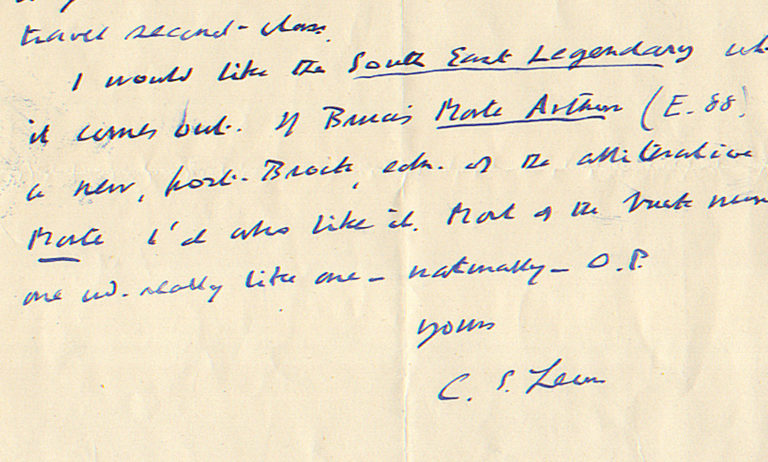 travel second-class.
I would like the South East Legendary wh
it comes out. If Bruce's Morte Arthur (E. 88)
a new, post-Brock, edn. of the alliterative
Morte I'd also like it. Most of the
one wd. really like one – naturally – O.P.
yours
C. S. Lewis